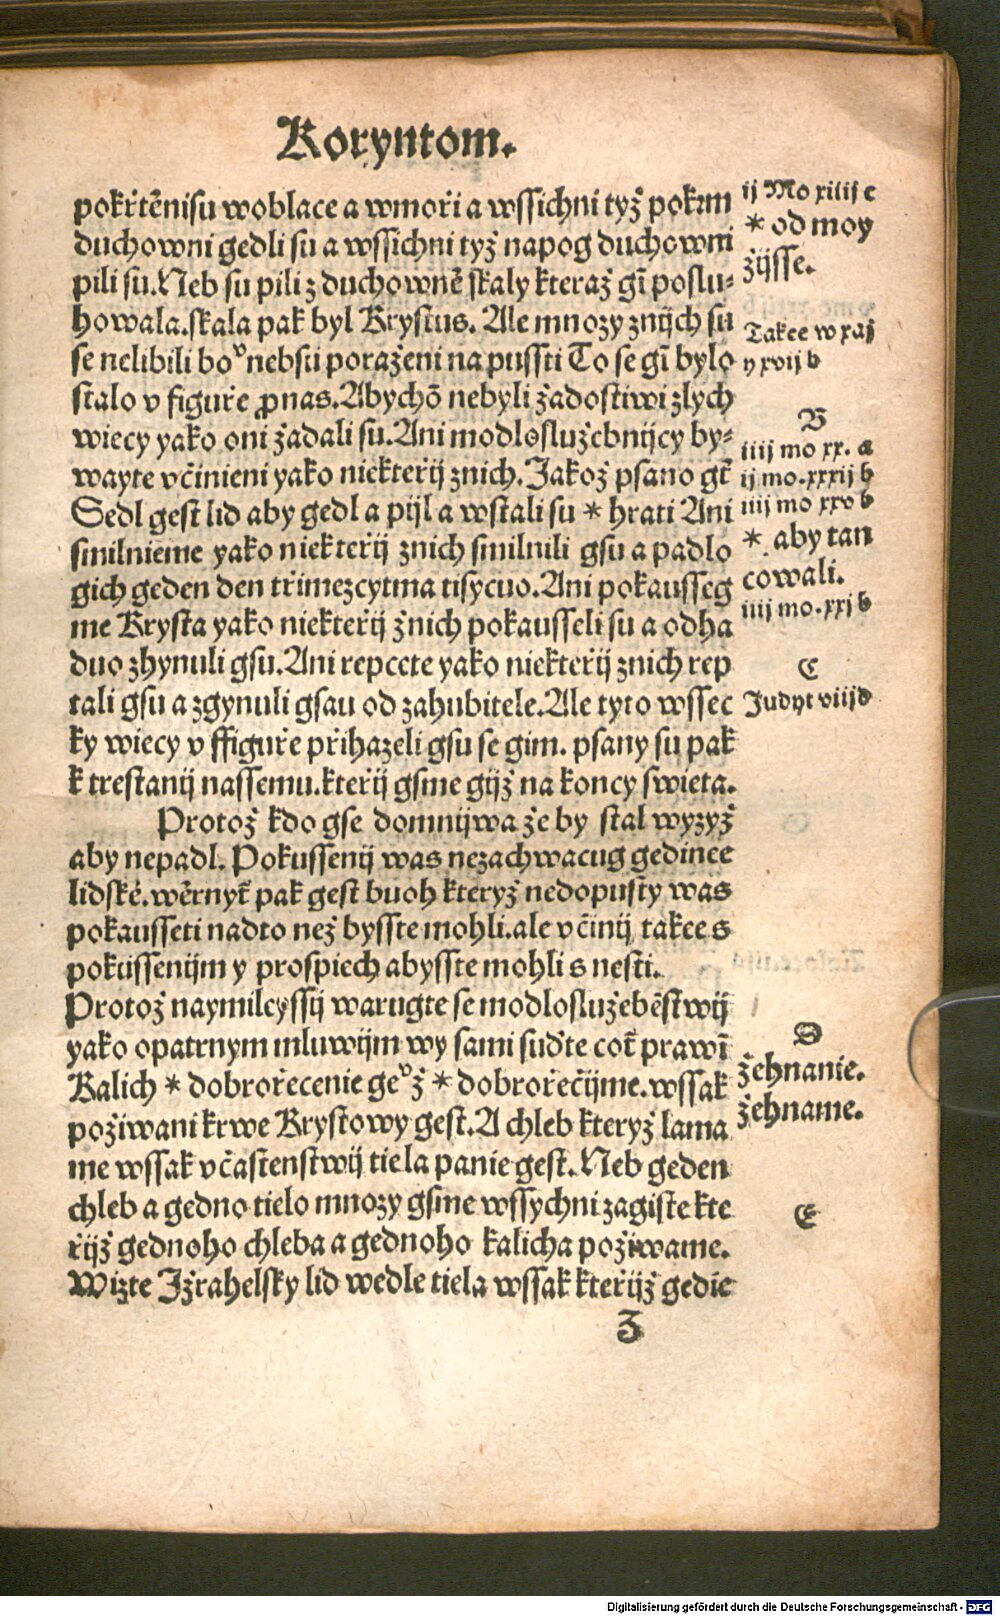 Koryntom.
pokřtěnisu woblace a wmoři a wssichni tyž pokrm
duchowni gedli su a wssichni tyž napog duchowni
pili su. Neb su pili z duchownē skaly kteraž gī poslu-
howala. skala pak byl Krystus. Ale mnozy znijch su
se nelibili boͮ nebsu poraženi na pussti To se gī bylo
stalo v figuře ꝓnas. Abychō nebyli žadostiwi zlych
wiecy yako oni žadali su. Ani modloslužebnijcy by-
wayte včinieni yako niekteřij znich. Jakož psano gt̄
Sedl gest lid aby gedl a pijl a wstali su * hrati Ani
smilnieme yako niekteřij znich smilnili gsu a padlo
gich geden den třimezcytma tisycuo. Ani pokausseg
me Krysta yako niekteřij žnich pokausseli su a odha
duo zhynuli gsu. Ani repcete yako niekteřij znich rep
tali gsu a zgynuli gsau od zahubitele. Ale tyto wssec
ky wiecy v ffiguře přihazeli gsu se gim. psany su pak
k trestanij nassemu. kteřij gsme gijž na koncy swieta.
Protož kdo gse domnijwa že by stal wyzyž
aby nepadl. Pokussenij was nezachwacug gedinee
lidskē. wěrnyt̄ pak gest buoh kteryž nedopusťy was
pokausseti nadto než bysste mohli. ale včinij takee s
pokussenijm y prospiech abysste mohli s nesti.
Protož naymilcyssij warugte se modloslužebēstwij
yako opatrnym mluwijm wy sami suďte cot̄ prawī
Kalich * dobrořecenie geͮž * dobrořečijme. wssak
požiwani krwe Krystowy gest. A chleb kteryž lama
me wssak včastenstwij tiela panie gest. Neb geden
chleb a gedno tielo mnozy gsme wssychni zagiste kte
řijž gednoho chleba a gednoho kalicha požiwame.
Wizte Jžrahelsky lid wedle tiela wssak kteřijž gedie
Z
ij Mo xiiij c
* od moy
žijsse.
Takee w xaij
y xvij b
B
iiij mo xx. a
ij mo. xxxij b
iiij mo xxv b
* aby tan
cowali.
iiij mo. xxj b
C
Judyt viij d
D
žehnanie.
žehname.
E
Digitalisierung gefördert durch die Deutsche Forschungsgemeinschaft - DFG